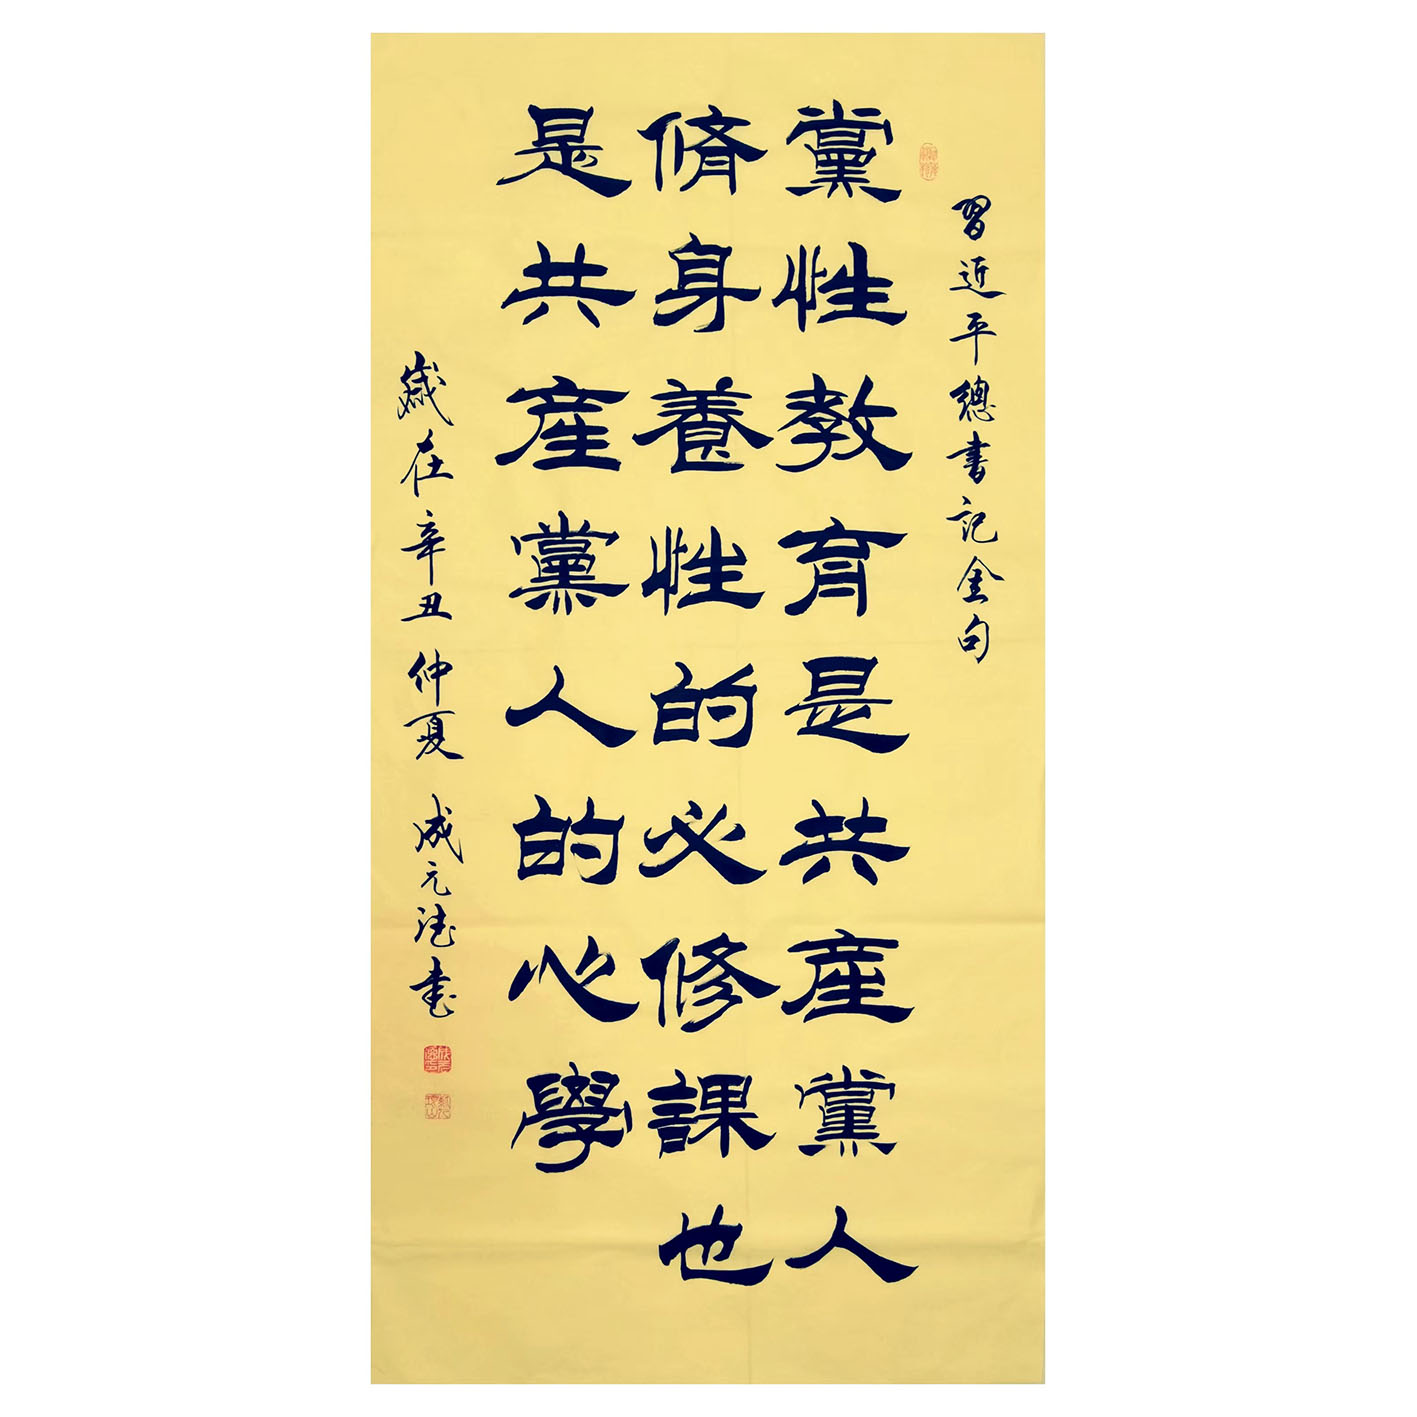 習近平總書記金句
黨性教育是共産黨人
脩身養性的必修課也
是共産黨人的心學
歲在辛丑仲夏成元德書